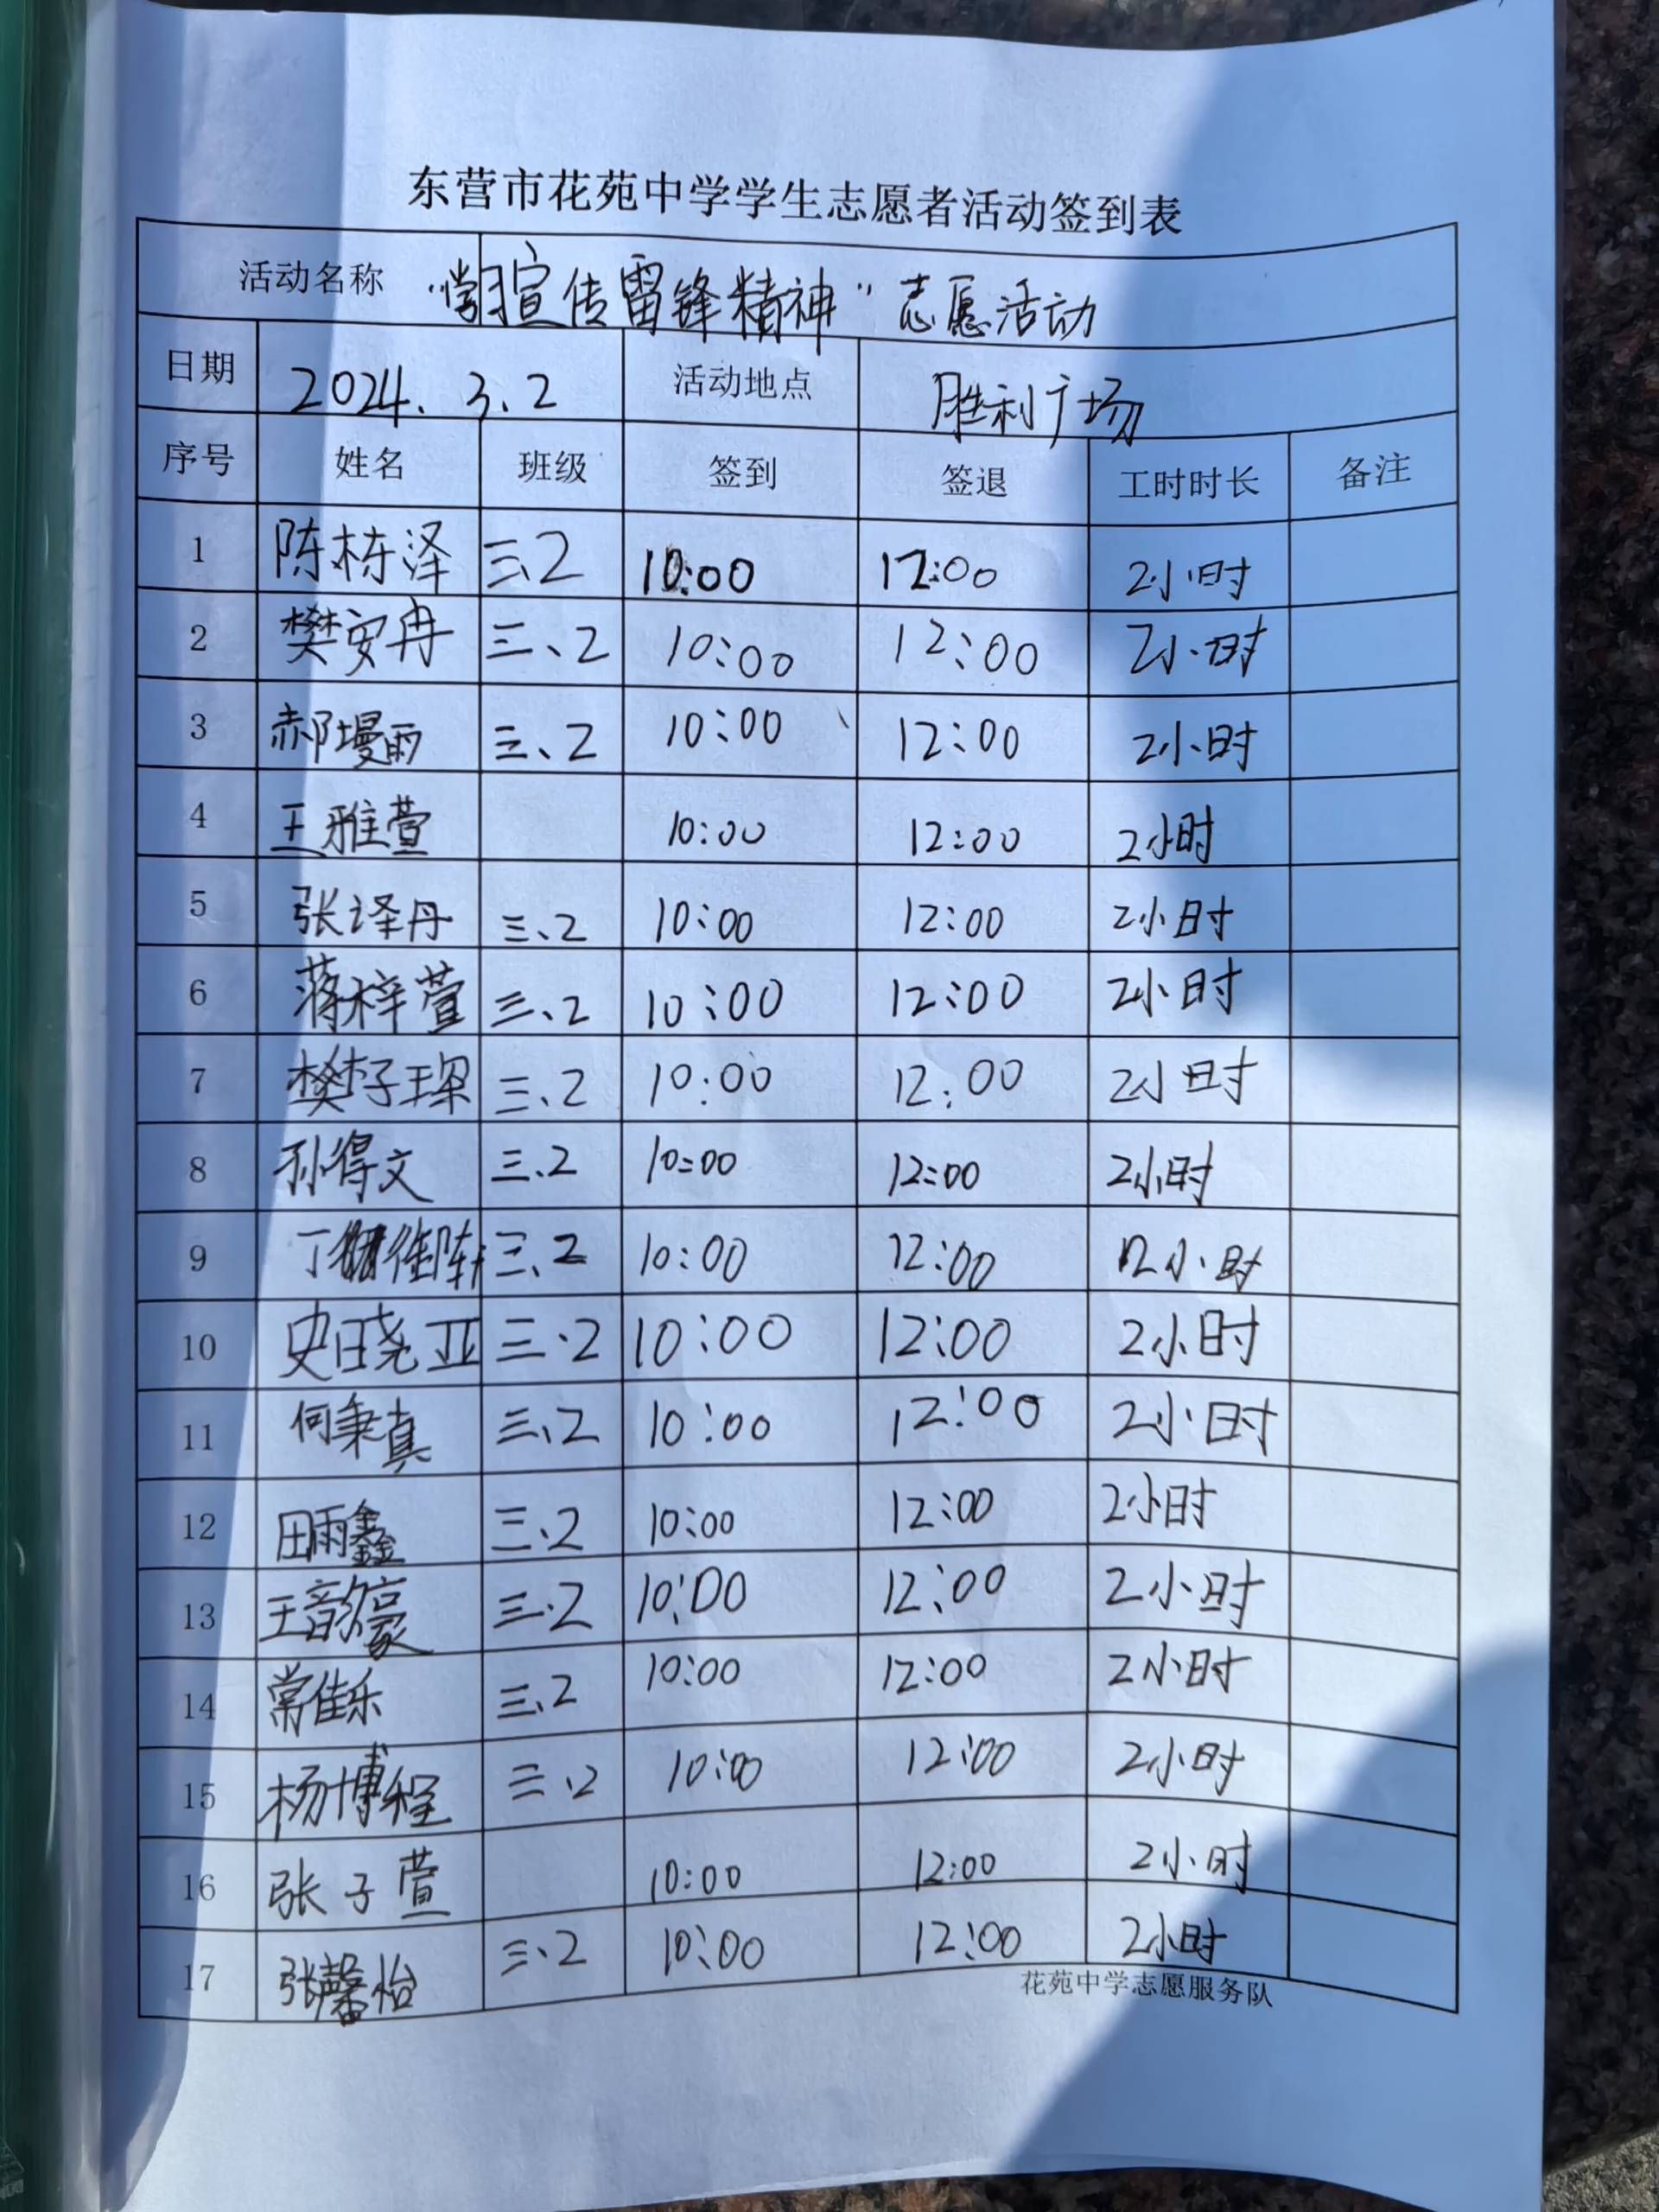 东营市花苑中学学生志愿者活动签到表
活动名称 “学习宣传雷锋精神”志愿活动
日期 2024.3.2 活动地点 胜利广场
序号 姓名 班级 签到 签退 工时时长 备注
1 陈栋泽 三、2 10:00 12:00 2小时
2 樊安冉 三、2 10:00 12:00 2小时
3 郝墁雨 三、2 10:00 12:00 2小时
4 王雅萱 10:00 12:00 2小时
5 张译丹 三、2 10:00 12:00 2小时
6 蒋梓萱 三、2 10:00 12:00 2小时
7 樊子琛 三、2 10:00 12:00 2小时
8 孙得文 三、2 10:00 12:00 2小时
9 丁 三、2 10:00 12:00 2小时
10 史晓亚 三·2 10:00 12:00 2小时
11 何秉真 三、2 10:00 12:00 2小时
12 田雨鑫 三、2 10:00 12:00 2小时
13 王韵豪 三·2 10:00 12:00 2小时
14 常佳乐 三、2 10:00 12:00 2小时
15 杨博程 三、2 10:00 12:00 2小时
16 张子萱 10:00 12:00 2小时
17 张馨怡 三、2 10:00 12:00 2小时
花苑中学志愿服务队